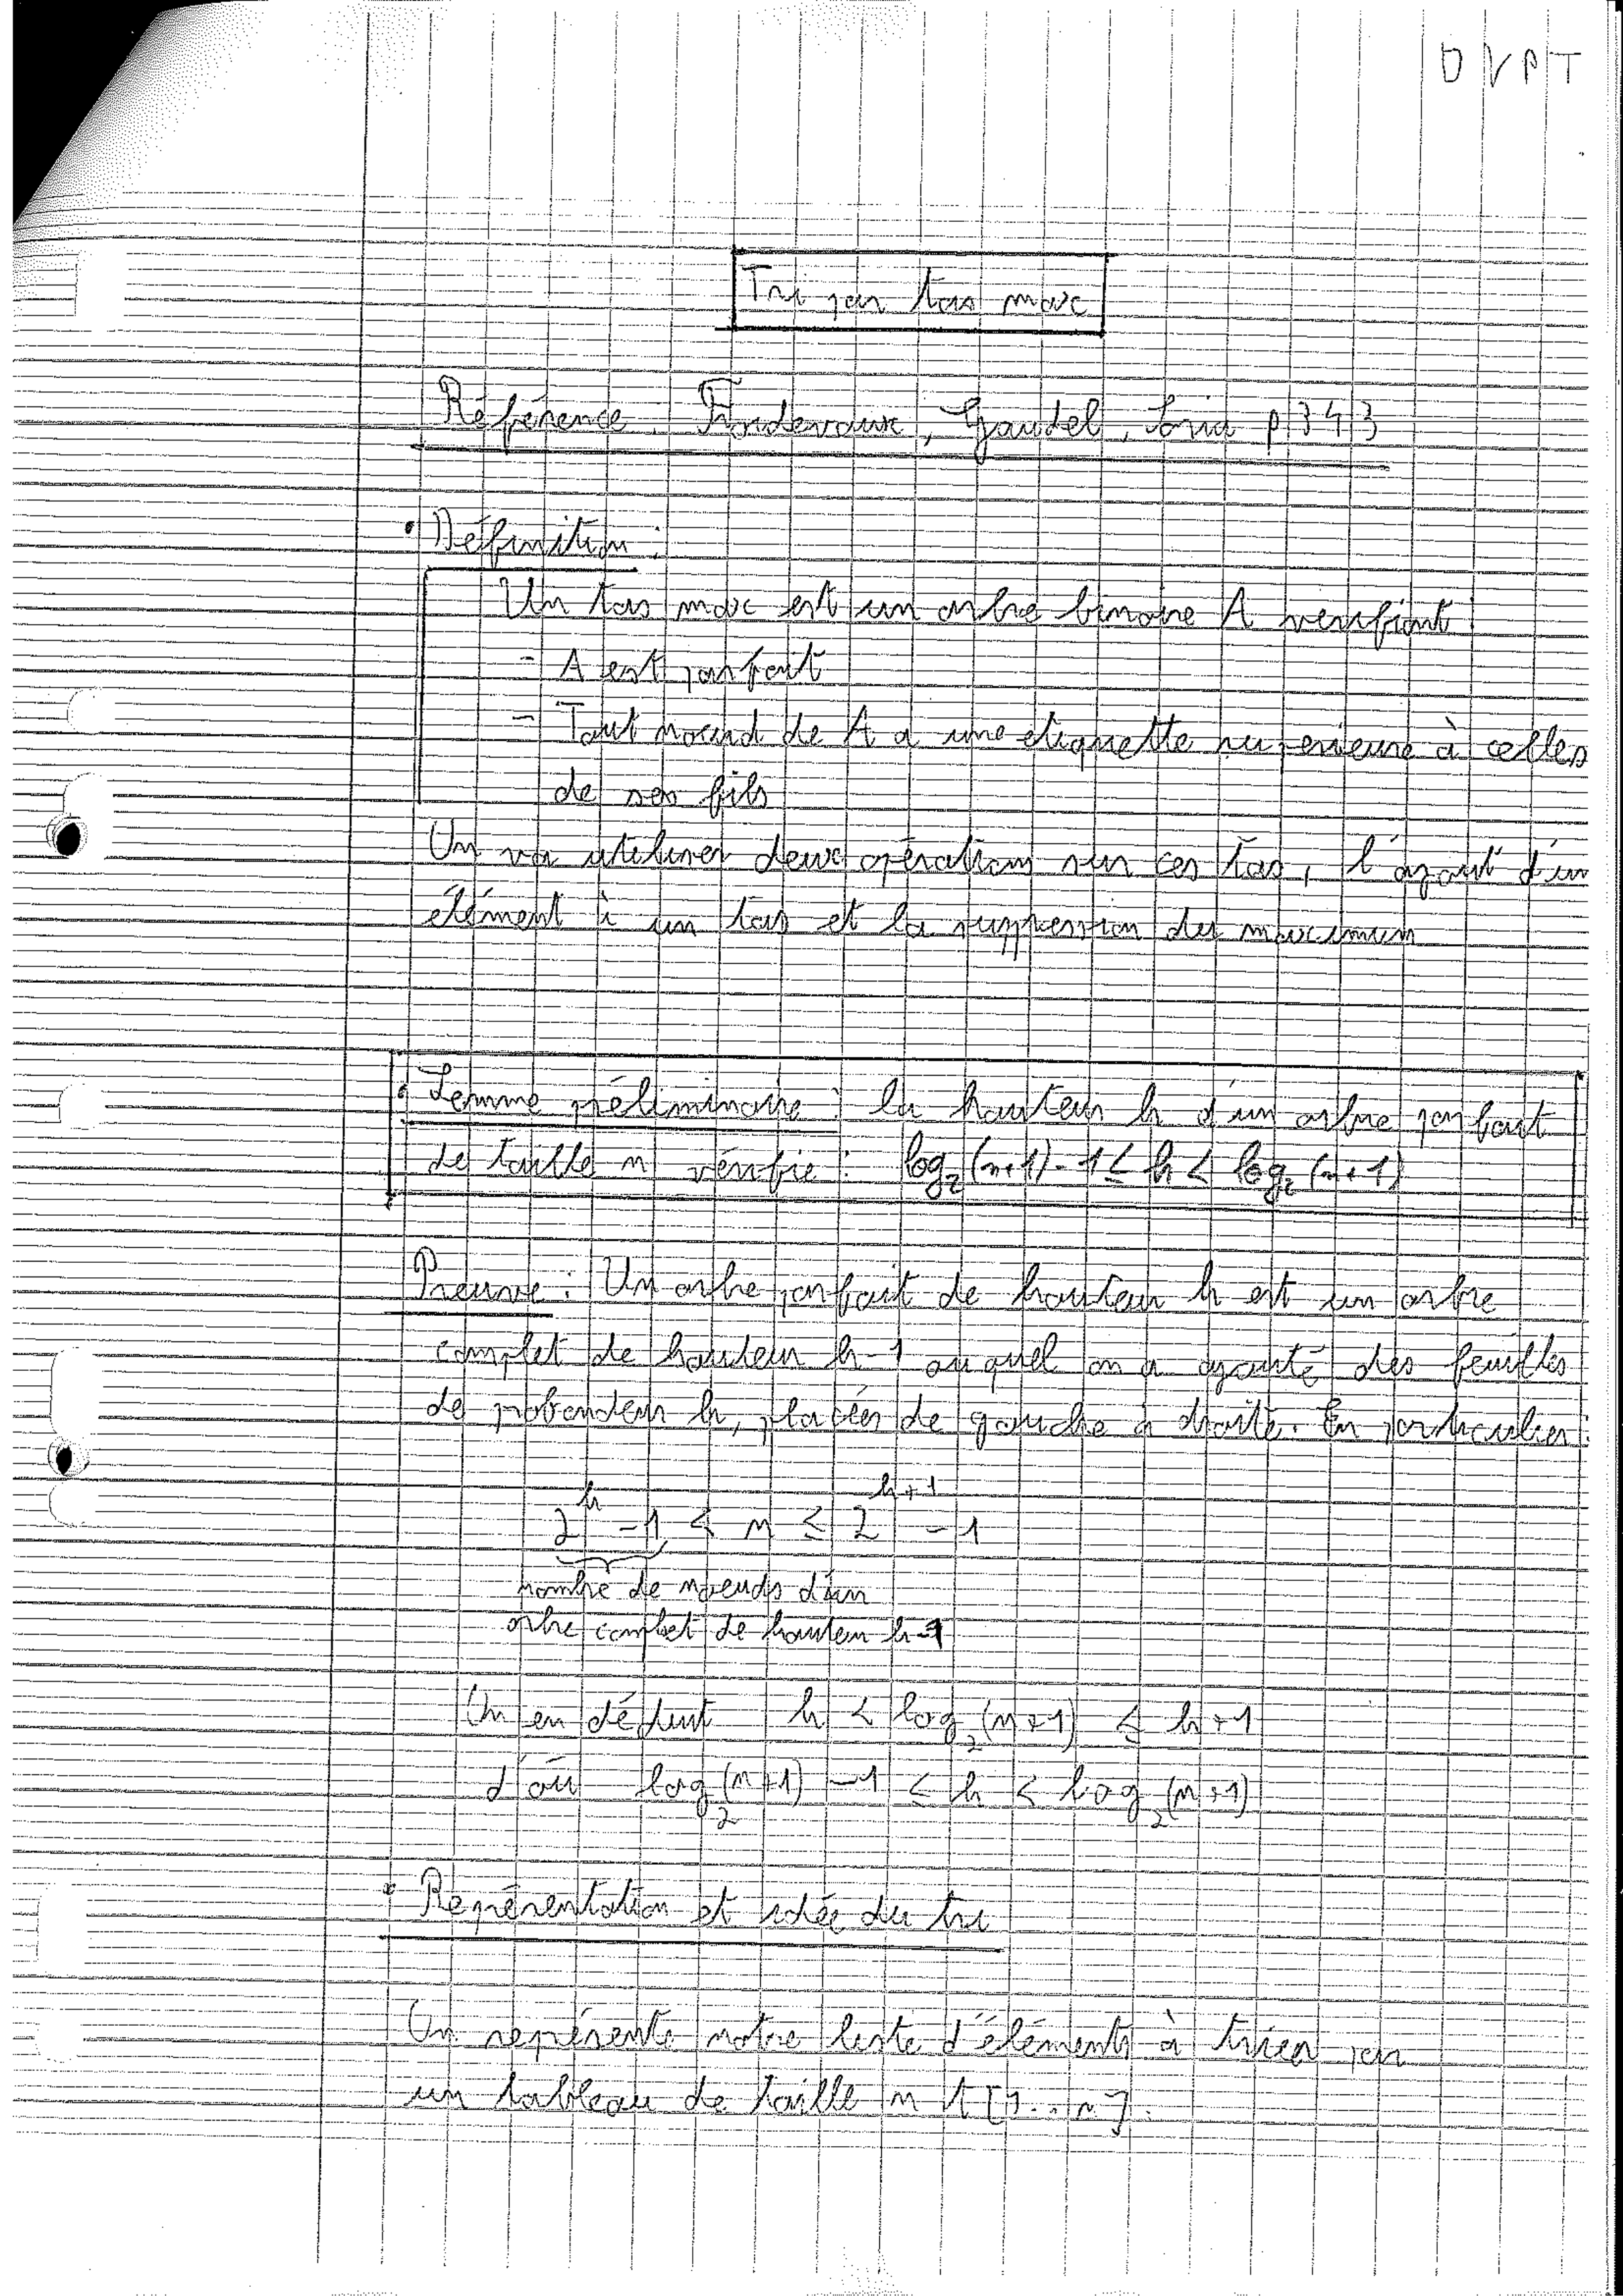 DVPT
Tri par tas max
Référence : Froidevaux, Gaudel, Soria p 343
• Définition :
Un tas max est un arbre binaire A verifiant
- A est parfait
- Tout noeud de A a une etiquette superieure à celles
de ses fils
On va utiliser deux opérations sur ces tas, l'ajout d'un
élément à un tas et la suppression du maximum
• Lemme préliminaire : la hauteur h d'un arbre parfait
de taille n vérifie : log₂(n+1)-1 ≤ h < log₂(n+1)
Preuve : Un arbre parfait de hauteur h est un arbre
complet de hauteur h-1 auquel on a ajouté des feuilles
de profondeur h, placées de gauche à droite. En particulier :
2^h - 1 < n ≤ 2^(h+1) - 1
nombre de noeuds d'un
arbre complet de hauteur h-1
On en déduit h < log₂(n+1) ≤ h+1
d'où log₂(n+1) - 1 ≤ h < log₂(n+1)
• Représentation et idée du tri
On représente notre liste d'éléments à trier par
un tableau de taille n t[1...n].